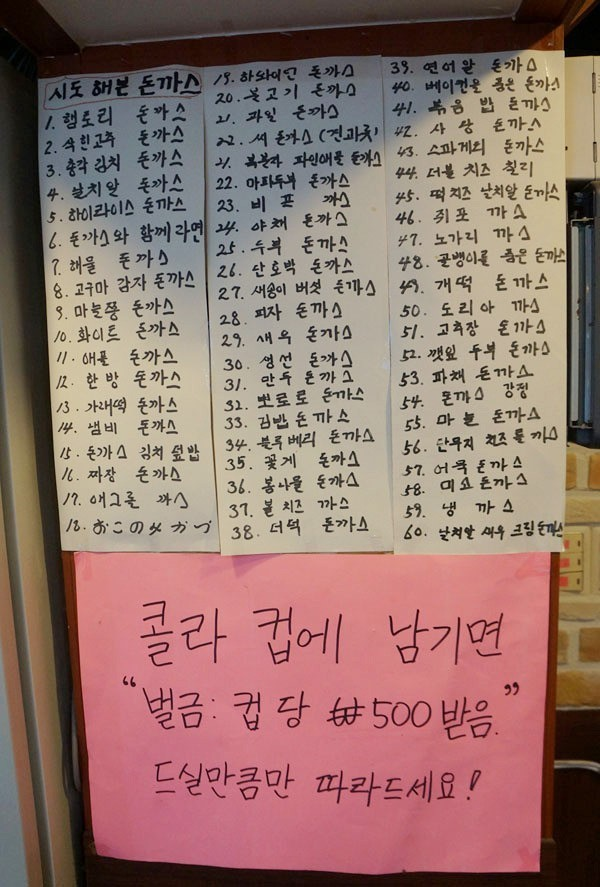 시도 해본 돈까스
1. 햄토리 돈까스
2. 삭힌고추 돈까스
3. 총각김치 돈까스
4. 날치알 돈까스
5. 하이라이스 돈까스
6. 돈까스와 함께 라면
7. 해물 돈까스
8. 고구마 감자 돈까스
9. 마늘쫑 돈까스
10. 화이트 돈까스
11. 애플 돈까스
12. 한방 돈까스
13. 가래떡 돈까스
14. 냄비 돈까스
15. 돈까스 김치 덮밥
16. 짜장 돈까스
17. 에그롤 까스
18. おこのみかつ
19. 하와이안 돈까스
20. 불고기 돈까스
21. 파일 돈까스
22. 씨 돈까스 (견과류)
21. 복분자 파인애플 돈까스
22. 마파두부 돈까스
23. 비프 까스
24. 야채 돈까스
25. 두부 돈까스
26. 단호박 돈까스
27. 새송이 버섯 돈까스
28. 피자 돈까스
29. 새우 돈까스
30. 생선 돈까스
31. 만두 돈까스
32. 뽀로로 돈까스
33. 김밥 돈까스
34. 블루베리 돈까스
35. 꽃게 돈까스
36. 봄나물 돈까스
37. 볼 치즈 까스
38. 더덕 돈까스
39. 연어알 돈까스
40. 베이컨을 품은 돈까스
41. 볶음밥 돈까스
42. 사랑 돈까스
43. 스파게티 돈까스
44. 더블 치즈 칠리
45. 떡치즈 날치알 돈까스
46. 쥐포 까스
47. 노가리 까스
48. 골뱅이를 품은 돈까스
49. 개떡 돈까스
50. 도리아 까스
51. 고추장 돈까스
52. 깻잎 두부 돈까스
53. 파채 돈까스
54. 돈까스 강정
55. 마늘 돈까스
56. 단무지 치즈롤 까스
57. 어묵 돈까스
58. 미소 돈까스
59. 냉 까스
60. 날치알 새우 크림 돈까스
콜라 컵에 남기면
“벌금: 컵당 ₩500 받음.”
드실만큼만 따라드세요!